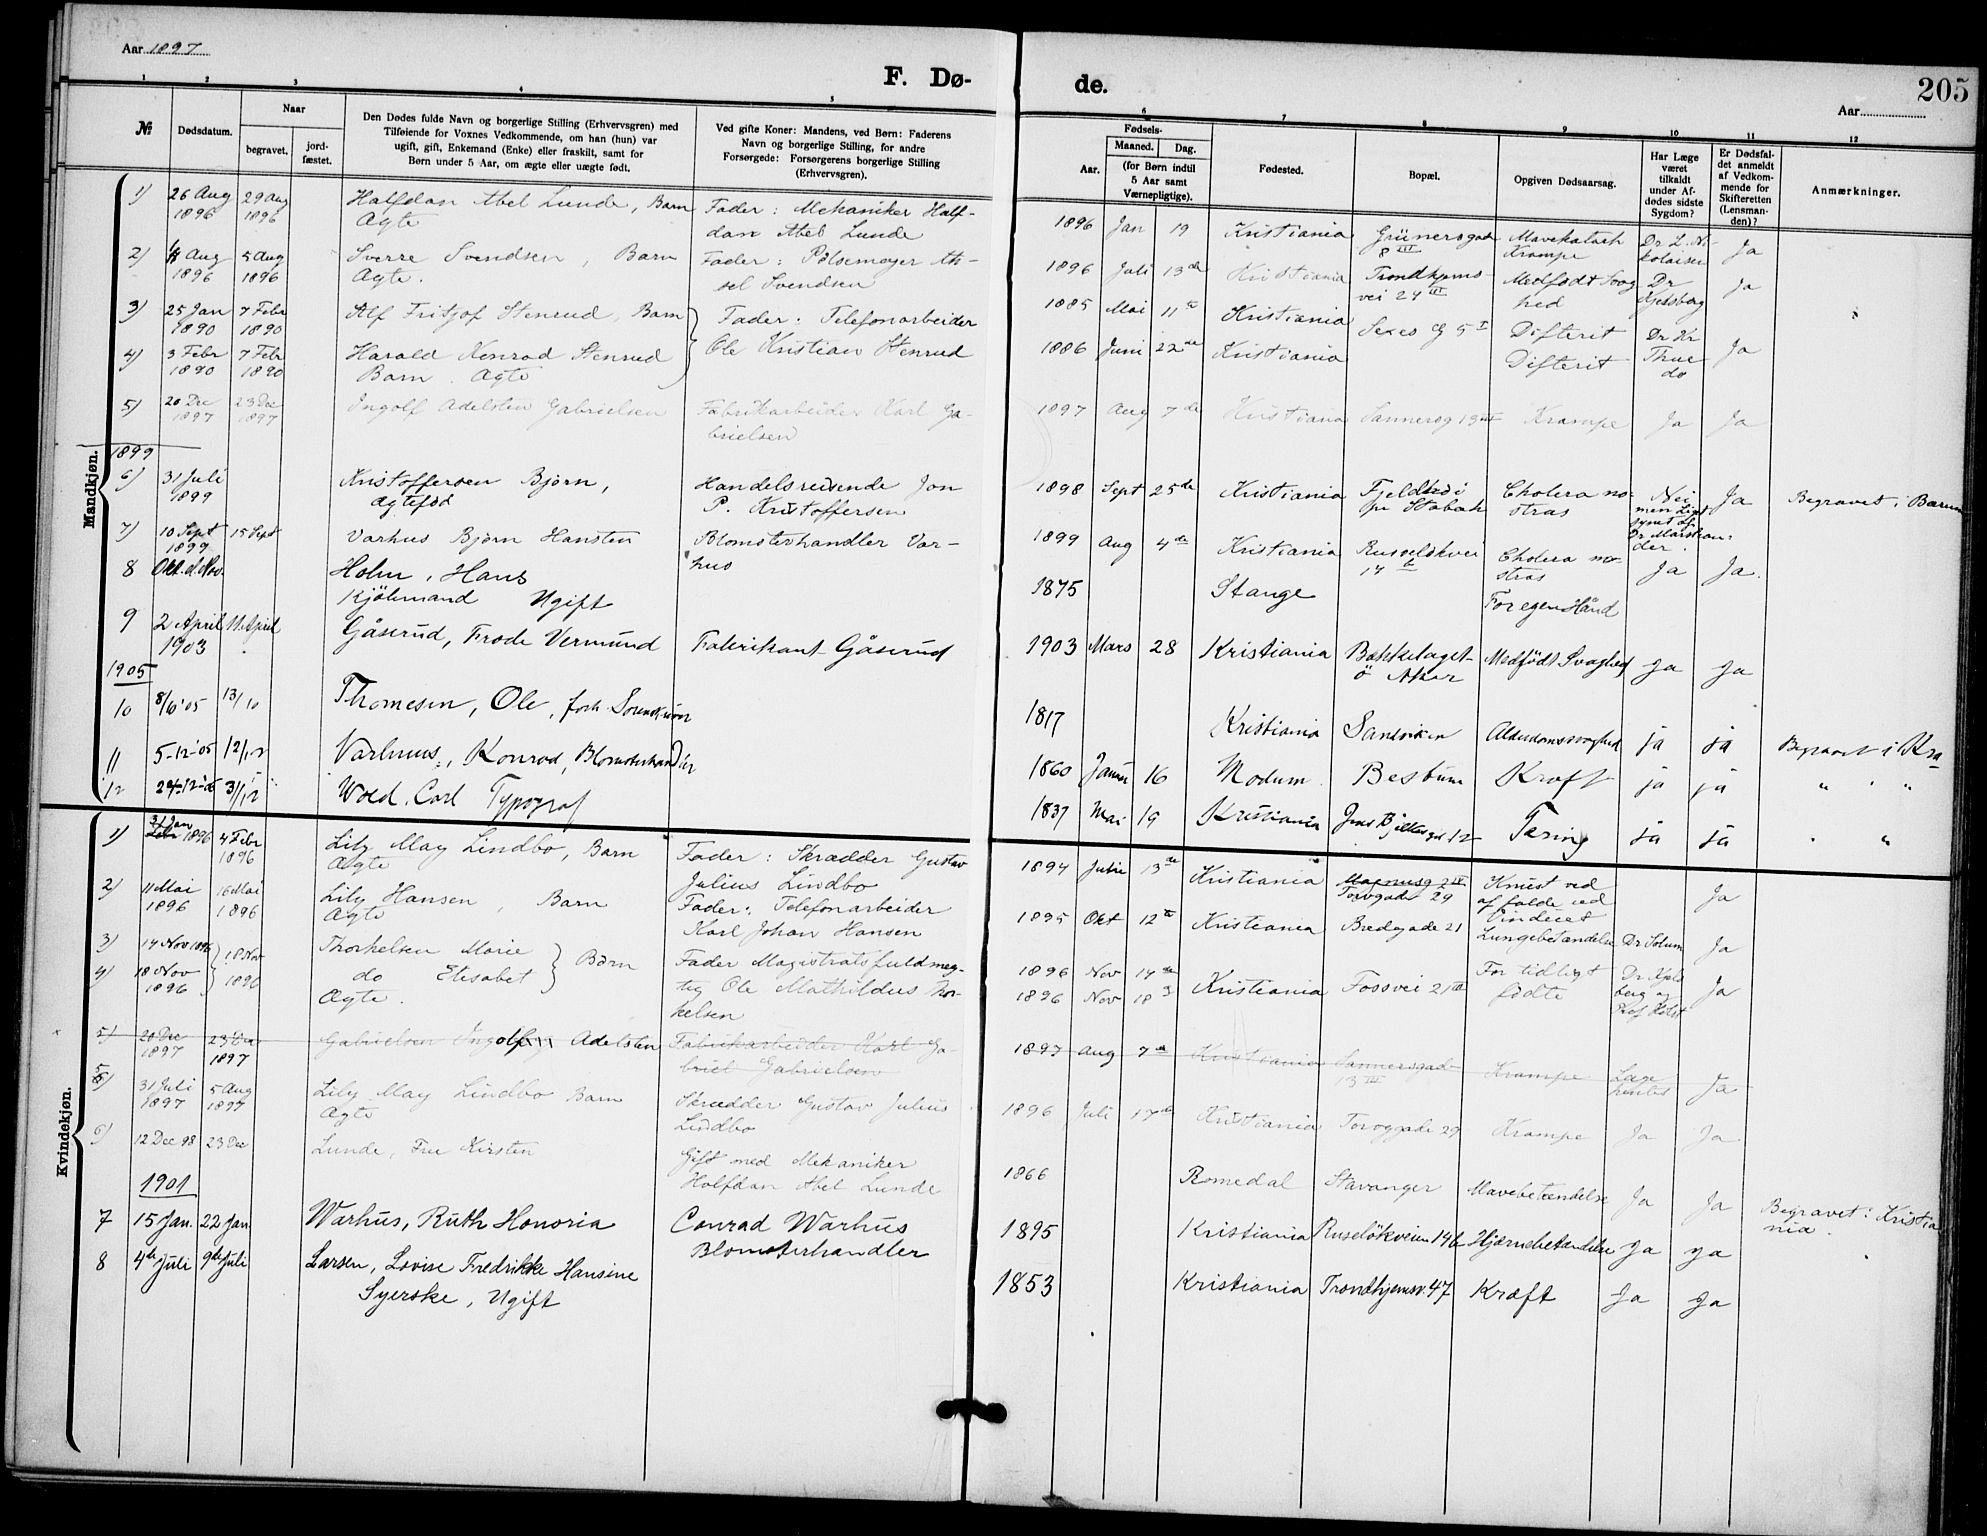 Aar 1897
F. Dø-
de.
205
Aar
1 2 3 4 5 6 7 8 9 10 11 12
№
Dødsdatum.
Naar
begravet.
jord-
fæstet.
Den Dødes fulde Navn og borgerlige Stilling (Erhvervsgren) med
Tilføiende for Voxnes Vedkommende, om han (hun) var
ugift, gift, Enkemand (Enke) eller fraskilt, samt for
Børn under 5 Aar, om ægte eller uægte født.
Ved gifte Koner: Mandens, ved Børn: Faderens
Navn og borgerlige Stilling, for andre
Forsørgede: Forsørgerens borgerlige Stilling
(Erhvervsgren).
Fødsels-
Aar.
Maaned.
Dag.
(for Børn indtil
5 Aar samt
Værnepligtige).
Fødested.
Bopæl.
Opgiven Dødsaarsag.
Har Læge
været
tilkaldt
under Af-
dødes sidste
Sygdom?
Er Dødsfal-
det anmeldt
af Vedkom-
mende for
Skifteretten
(Lensman-
den)?
Anmærkninger.
Mandkjøn.
1) 26 Aug 29 Aug Halfdan Abel Lunde, Barn Fader: Mekaniker Half- 1896 Jan 19 Kristiania Grünersgade Mavekatarh Dr L. Ni- Ja
1896 1896 Ægte dan Abel Lunde 8 III Krampe kolaisen
2) Aug 5 Aug Sverre Svendsen, Barn Fader: Pølsemager Ak- 1896 Juli 13de Kristiania Trondhjems- Medfødt Svag Dr Ja
1896 1896 Ægte. sel Svendsen vei 24 III hed Kjelsberg
3) 25 Jan 7 Febr Alf Fritjof Stenrud, Barn Fader: Telefonarbeider 1885 Mai 11te Kristiania Sexes g 5 I Difterit Dr Kr
1890 1890
4) 3 Febr 7 Febr Harald Konrad Stenrud Ole Kristian Stenrud 1886 Juni 22de Kristiania Difterit Thue Ja
1890 1890 Barn. Ægte do
5) 20 Dec 23 Dec Ingolf Adelsten Gabrielsen Fabrikarbeider Karl Ga- 1897 Aug 7de Kristiania Sannersg 13 III Krampe Ja Ja
1897 1897 brielsen
1899
6) 31 Juli Kristoffersen Bjørn, Handelsreisende Jon 1898 Sept 25de Kristiania Fjeldhei Cholera no- Nei Ja Begravet i Bærum
1899 ægtefød P. Kristoffersen pr Stabæk stras men
7) 10 Sept 15 Sept Varhus Bjørn Hansten Blomsterhandler Var- 1899 Aug 4de Kristiania Ruselökvei Cholera no- Ja Ja.
1899 hus 14 b stras
8 Okt. el. Nov. Holm, Hans 1875 Stange For egen Hånd
Kjölmand Ugift
9 2 April 11 April Gåserud, Frode Vermund Fabrikant Gåserud 1903 Mars 28 Kristiania Bækkelaget Medfödt Svaghed Ja Ja
1903 ö Aker
1905
10 8/6'05 13/10 Thomesen, Ole, forh. 1817 Kristiania Sandviken Alderdomssvaghed ja ja Begravet i Kra
11 5-12-'05 12/12 Varhuus, Konrad, Blomsterhandler 1860 16 Modum Bestum Kræft ja ja " "
12 24-12-'05 31/12 Wold, Carl Typograf 1837 Mai 19 Kristiania Jens Bjelkesgd 12 Tæring ja ja " "
Kvindekjøn.
1) 31 Jan 1896 4 Febr Lily May Lindbo, Barn Fader: Skrædder Gustav 1894 Juli 13de Kristiania Magnusg 2 IV Knust ved Ja
1896 Ægte Julius Lindbo Torvgade 29 at falde ud
2) 11 Mai 16 Mai Lily Hansen, Barn Fader: Telefonarbeider 1895 Okt 12te Kristiania Bredegade 21 Vinduet
1896 1896 Ægte Karl Johan Hansen Lungebetændelse Dr Solum Ja
3) 14 Nov 1896 18 Nov Thorkelsen Marie Børn Fader Magistratsfuldmæg- 1896 Nov 14de Kristiania Fossvei 21 For tidligt Dr Kjels Ja
4) 18 Nov 1896 do Elisabet tig Ole Mathildus Thor- 1896 Nov 18 fødte berg og
1896 Ægte. kelsen Prof Holst
5) 20 Dec 23 Dec Gabrielsen Ingolf Adelsten Fabrikarbeider Karl Ga- 1897 Aug 7de Kristiania Sannersgad Krampe Læge Ja
1897 1897 briel Gabrielsen 13 III hentet
5) 31 Juli 5 Aug Lily May Lindbo Barn Skrædder Gustav Julius 1896 Juli 17de Kristiania Torvgade 29 Krampe Ja Ja
1897 1897 Ægte Lindbo
6) 12 Dec 98 23 Dec Lunde, Fru Kirsten Gift med Mekaniker 1866 Romedal Stavanger Mavebetændelse Ja Ja Begravet i Kristia
Halfdan Abel Lunde nia.
1901
7 15 Jan. 22 Jan. Warhus, Ruth Honoria Conrad Warhus 1895 Kristiania Ruselökveien 14b Hjærnebetændelse Ja Ja
Blomsterhandler
8 4de juli 9de juli Larsen, Lovise Fredrikke Hansine 1853 Kristiania Trondhjemsv. 47 Kræft Ja Ja
Syerske, Ugift